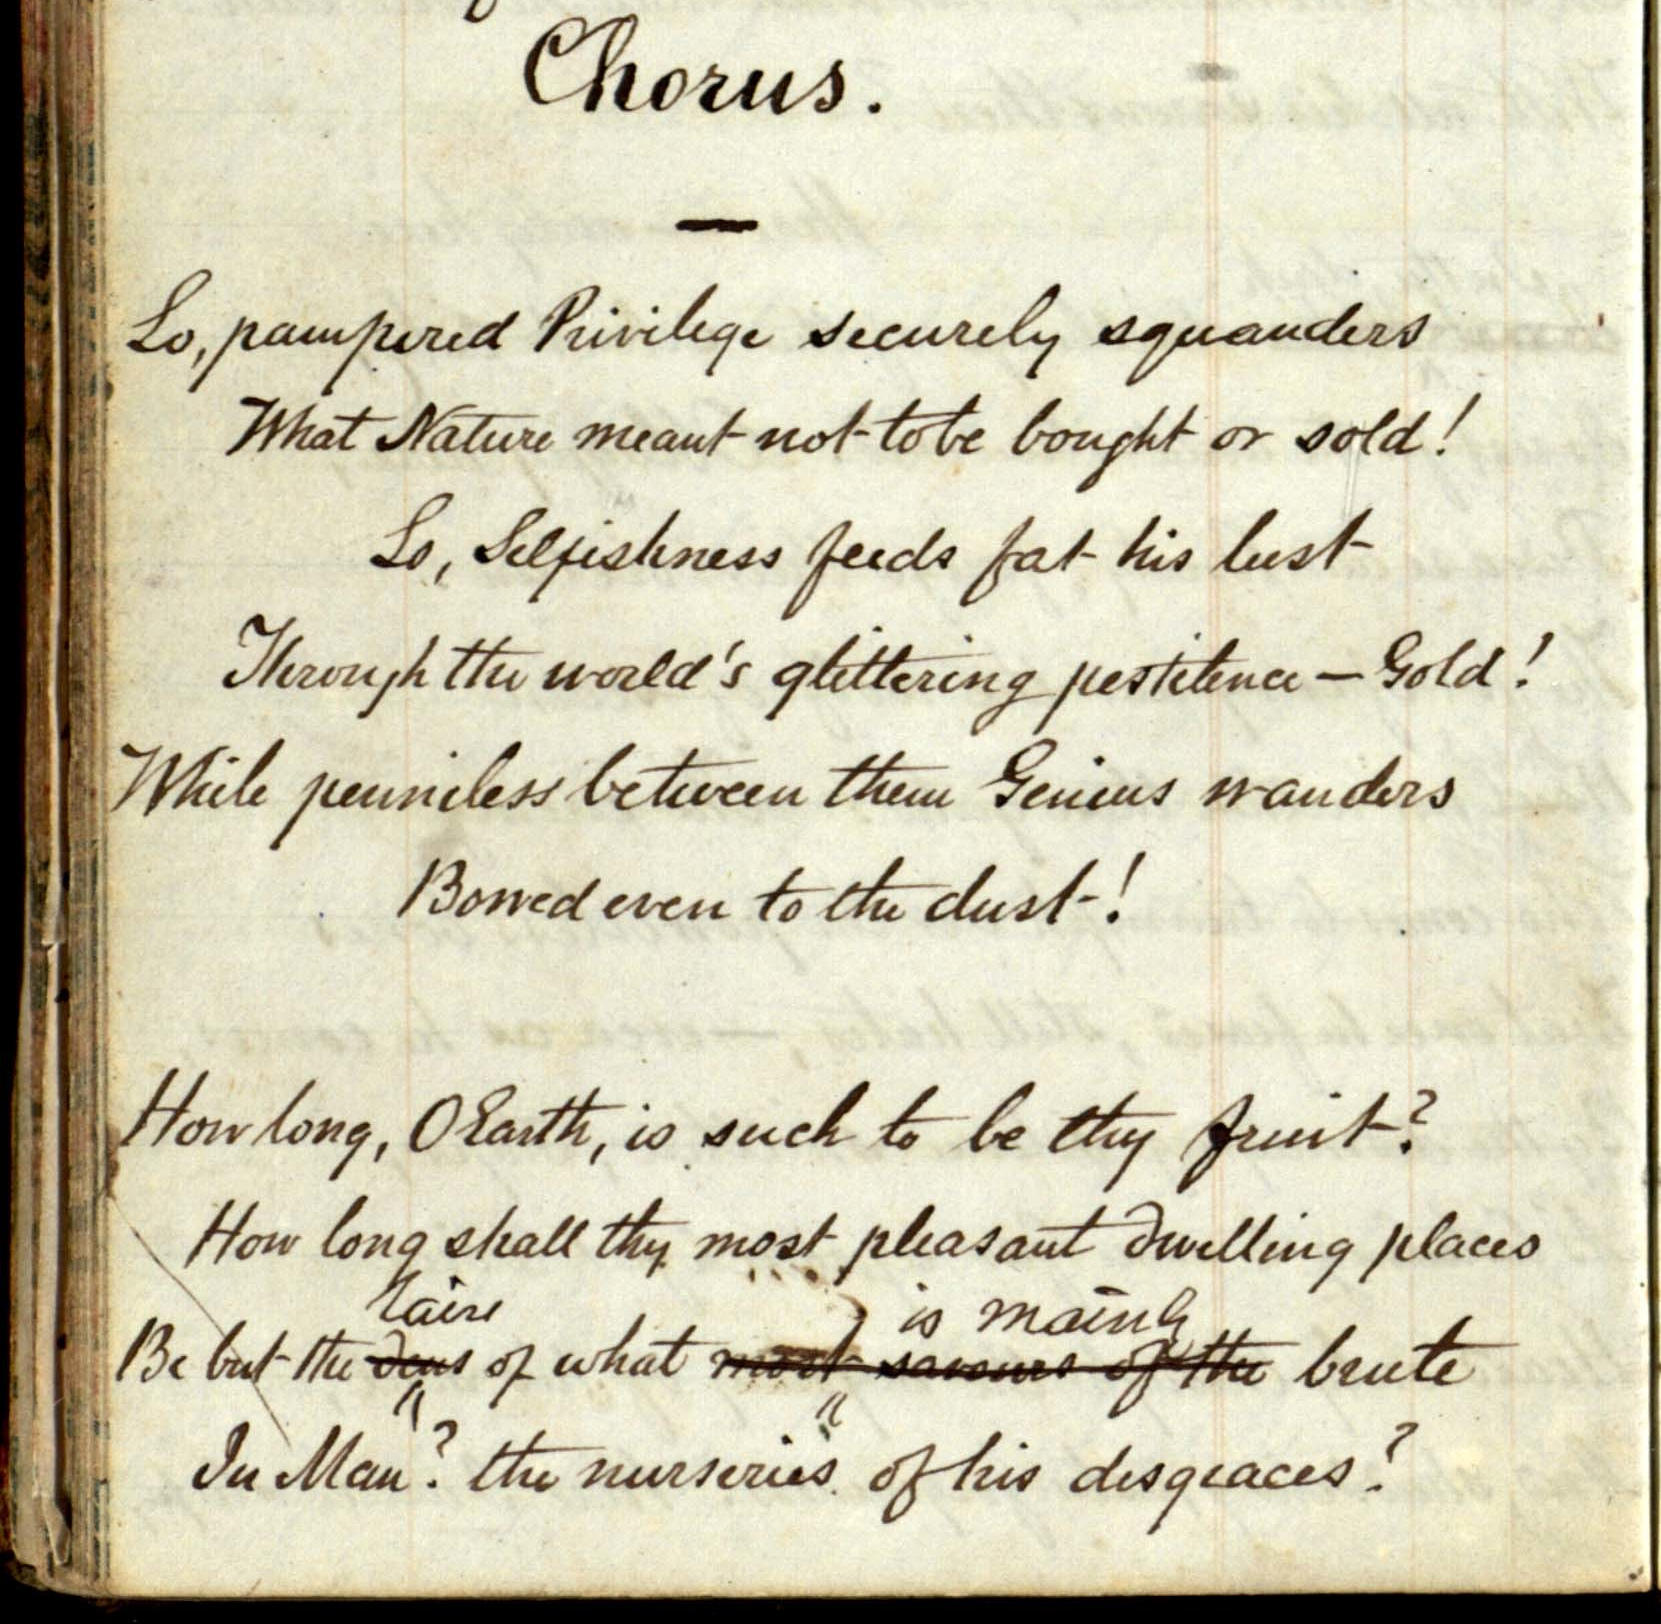 Chorus.
Lo, pampered Privilege securely squanders
What Nature meant not to be bought or sold!
Lo, Selfishness feeds fat his lust
Through the world's glittering pestilence — Gold!
While penniless between them Genius wanders
Bowed even to the dust!
How long, O Earth, is such to be thy fruit?
How long shall thy most pleasant dwelling places
lairs is mainly
Be but the dens of what most savours of the brute
In Man? the nurseries of his disgraces?